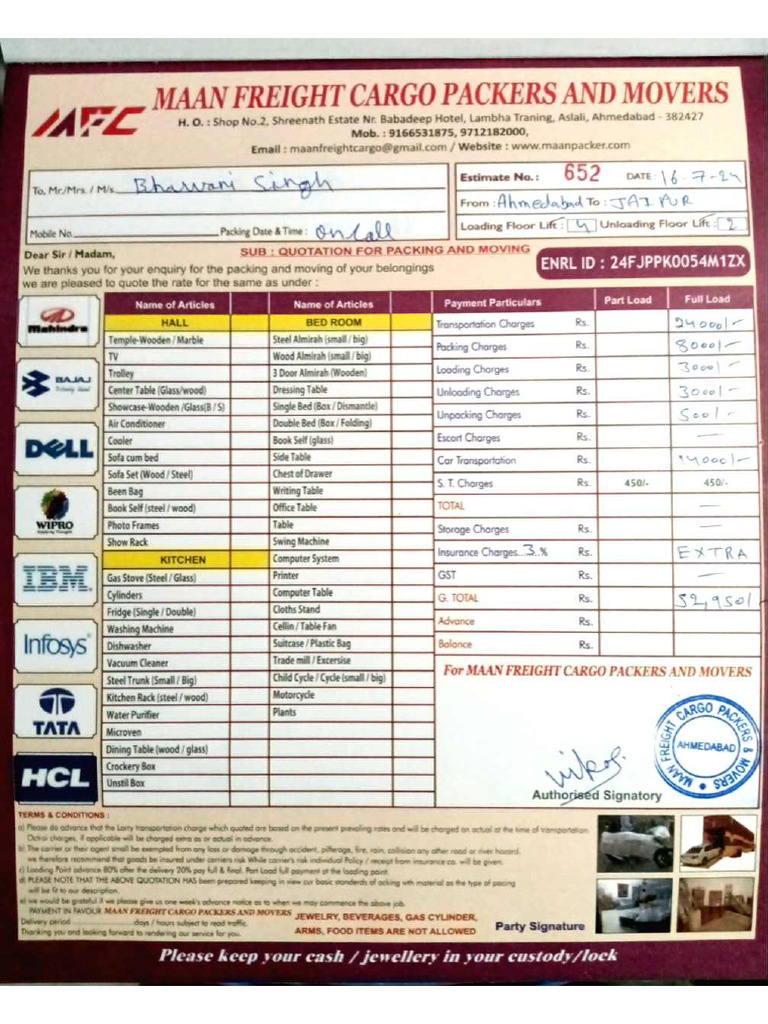 MFC
MAAN FREIGHT CARGO PACKERS AND MOVERS
H. O. : Shop No.2, Shreenath Estate Nr. Babadeep Hotel, Lambha Traning, Aslali, Ahmedabad - 382427
Mob. : 9166531875, 9712182000,
Email : maanfreightcargo@gmail.com / Website : www.maanpacker.com
To, Mr./Mrs. / M/s. Bhawani Singh
Mobile No. Packing Date & Time : On Call
Estimate No. : 652 DATE : 16-7-24
From : Ahmedabad To : JAIPUR
Loading Floor Lift : 4 Unloading Floor Lift : 2
Dear Sir / Madam,
SUB : QUOTATION FOR PACKING AND MOVING
We thanks you for your enquiry for the packing and moving of your belongings
we are pleased to quote the rate for the same as under :
ENRL ID : 24FJPPK0054M1ZX
Mahindra
BAJAJ
DELL
WIPRO
IBM
Infosys
TATA
HCL
Name of Articles
HALL
Temple-Wooden / Marble
TV
Trolley
Center Table (Glass/wood)
Showcase-Wooden /Glass(B / S)
Air Conditioner
Cooler
Sofa cum bed
Sofa Set (Wood / Steel)
Been Bag
Book Self (steel / wood)
Photo Frames
Show Rack
KITCHEN
Gas Stove (Steel / Glass)
Cylinders
Fridge (Single / Double)
Washing Machine
Dishwasher
Vacuum Cleaner
Steel Trunk (Small / Big)
Kitchen Rack (steel / wood)
Water Purifier
Microven
Dining Table (wood / glass)
Crockery Box
Unstil Box
Name of Articles
BED ROOM
Steel Almirah (small / big)
Wood Almirah (small / big)
3 Door Almirah (Wooden)
Dressing Table
Single Bed (Box / Dismantle)
Double Bed (Box / Folding)
Book Self (glass)
Side Table
Chest of Drawer
Writing Table
Office Table
Table
Swing Machine
Computer System
Printer
Computer Table
Cloths Stand
Cellin / Table Fan
Suitcase / Plastic Bag
Trade mill / Excersise
Child Cycle / Cycle (small / big)
Motorcycle
Plants
Payment Particulars Part Load Full Load
Transportation Charges Rs. 24000/-
Packing Charges Rs. 8000/-
Loading Charges Rs. 3000/-
Unloading Charges Rs. 3000/-
Unpacking Charges Rs. 500/-
Escort Charges Rs. —
Car Transportation Rs. 14000/-
S. T. Charges Rs. 450/- 450/-
TOTAL —
Storage Charges Rs. —
Insurance Charges..3..% Rs. EXTRA
GST Rs. —
G. TOTAL Rs. 52,950/-
Advance Rs.
Balance Rs.
For MAAN FREIGHT CARGO PACKERS AND MOVERS
MAAN FREIGHT CARGO PACKERS & MOVERS
AHMEDABAD
Authorised Signatory
TERMS & CONDITIONS :
a) Please do advance that the Lorry transportation charge which quoted are based on the present prevailing rates and will be charged on actual at the time of transportation
Octroi charges, if applicable will be charged extra as or actual in advance.
b) The carrier or their agent shall be exempted from any loss or damage through accident, pilferage, fire, rain, collision any other road or river hazard.
we therefore recommend that goods be insured under carriers risk While carrier's risk individual Policy / receipt from insurance co. will be given.
c) Loading Point advance 80% after the delivery 20% pay full & final. Part Load full payment at the loading point.
d) PLEASE NOTE THAT THE ABOVE QUOTATION HAS been prepared keeping in view our basic standards of acking with material as the type of pacing
will be fit to our description.
e) we would be grateful if we please give us one week's advance notice as to when we may commence the above job.
PAYMENT IN FAVOUR MAAN FREIGHT CARGO PACKERS AND MOVERS
Delivery period days / hours subject to read traffic.
Thanking you and looking forward to rendering our service for you.
JEWELRY, BEVERAGES, GAS CYLINDER,
ARMS, FOOD ITEMS ARE NOT ALLOWED
Party Signature
Please keep your cash / jewellery in your custody/lock